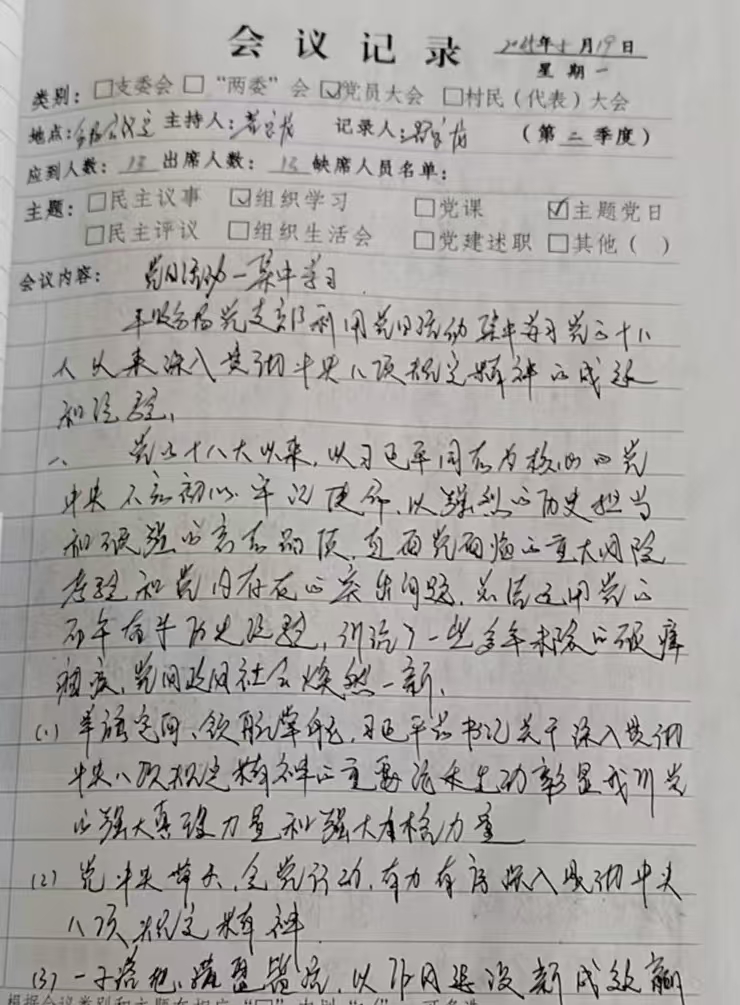 会议记录 2025年5月19日
星期一
类别：□支委会 □“两委”会 ☑党员大会 □村民（代表）大会
地点： 会议室 主持人： 记录人： （第二季度）
应到人数：13 出席人数：13 缺席人员名单：
主题：□民主议事 ☑组织学习 □党课 ☑主题党日
□民主评议 □组织生活会 □党建述职 □其他（ ）
会议内容： 党日活动—集中学习
党支部利用党日活动集中学习党的十八
大以来深入贯彻中央八项规定精神的成效
和经验。
一、 党的十八大以来，以习近平同志为核心的党
中央不忘初心、牢记使命，以强烈的历史担当
和顽强的意志品质，直面党面临的重大风险
考验和党内存在的突出问题，总结运用党的
百年奋斗历史经验，刹治了一些多年未除的顽瘴
痼疾，党风政风社会焕然一新。
(1) 举旗定向、领航掌舵，习近平总书记关于深入贯彻
中央八项规定精神的重要论述生动彰显我们党
的强大真理力量和强大人格力量
(2) 党中央带头，全党行动，有力有序深入贯彻中央
八项规定精神
(3) 一子落地、满盘皆活，以作风建设新成效赢
根据会议类别和主题在相应“□”内划“√”，可多选